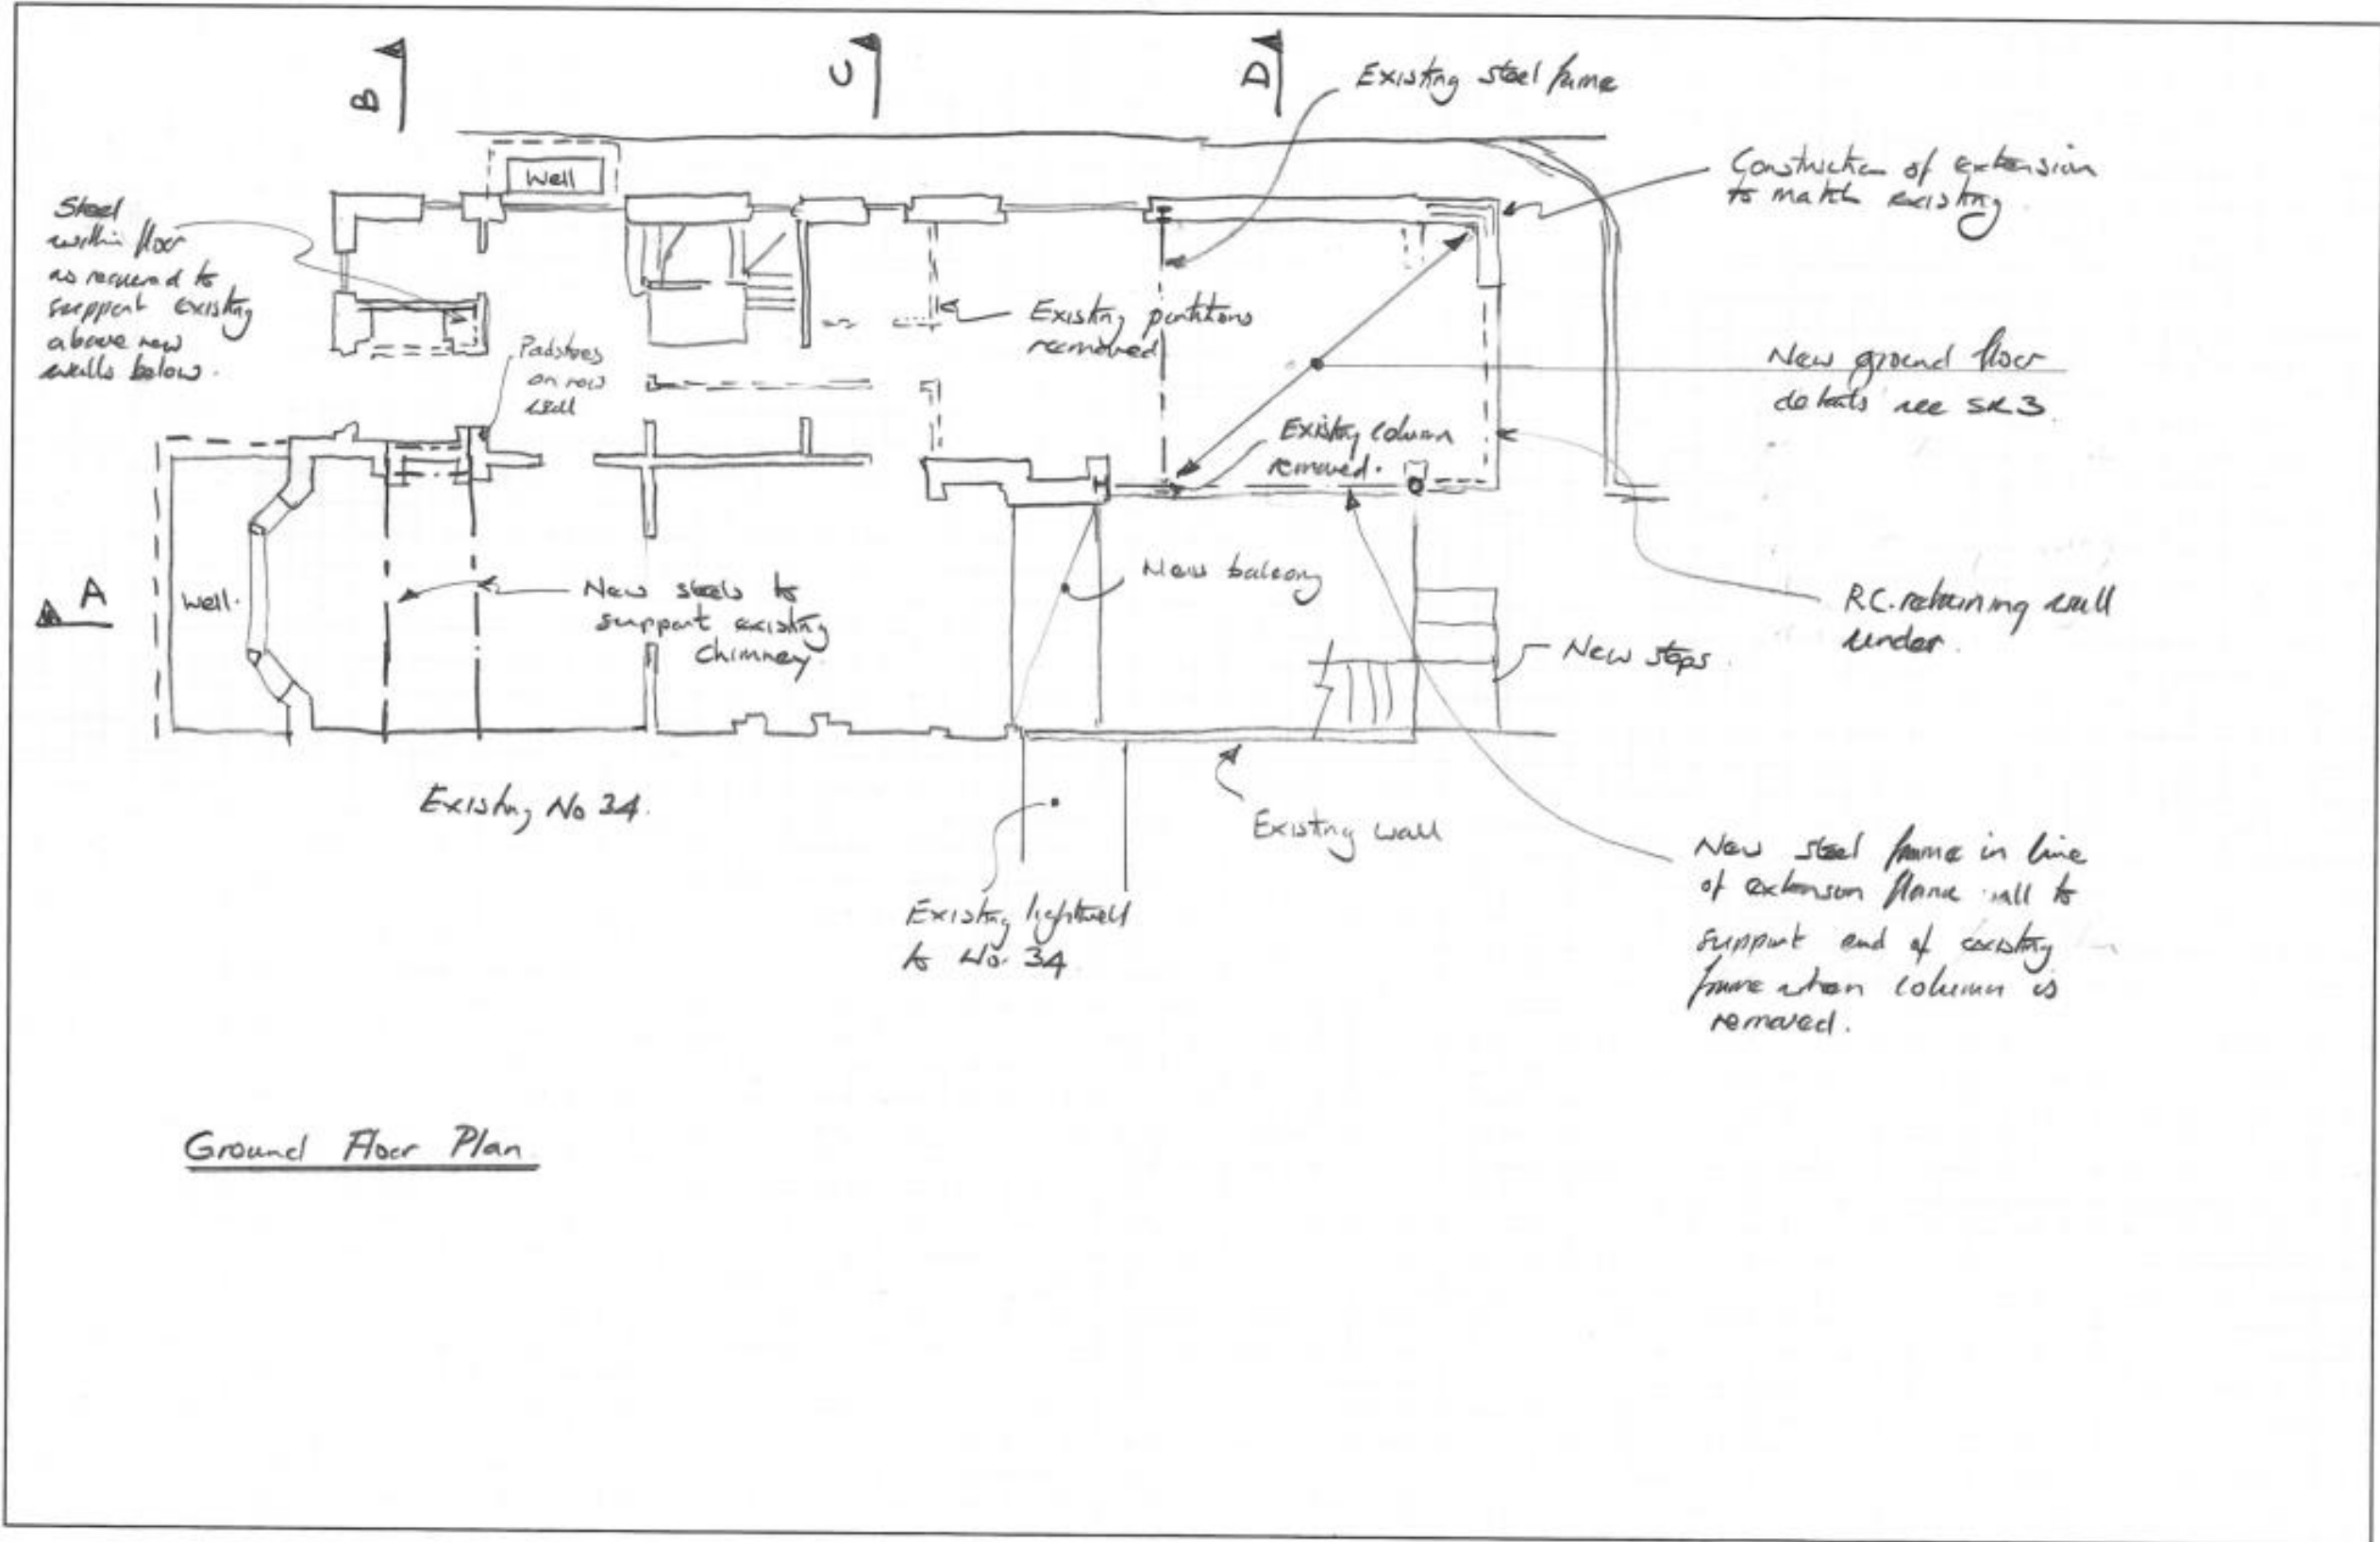 B
C
D
Existing steel frame
Construction of extension
to match existing
Well
Steel
within floor
as required to
support existing
above new
walls below.
Padstones
on new
wall
Existing partitions
removed
New ground floor
details see SK3
Existing column
removed.
A
Well.
New steels to
support existing
chimney
New balcony
R.C. retaining wall
under.
New steps.
Existing No 34.
Existing wall
Existing lightwell
to No. 34
New steel frame in line
of extension wall to
support end of existing
frame when column is
removed.
Ground Floor Plan